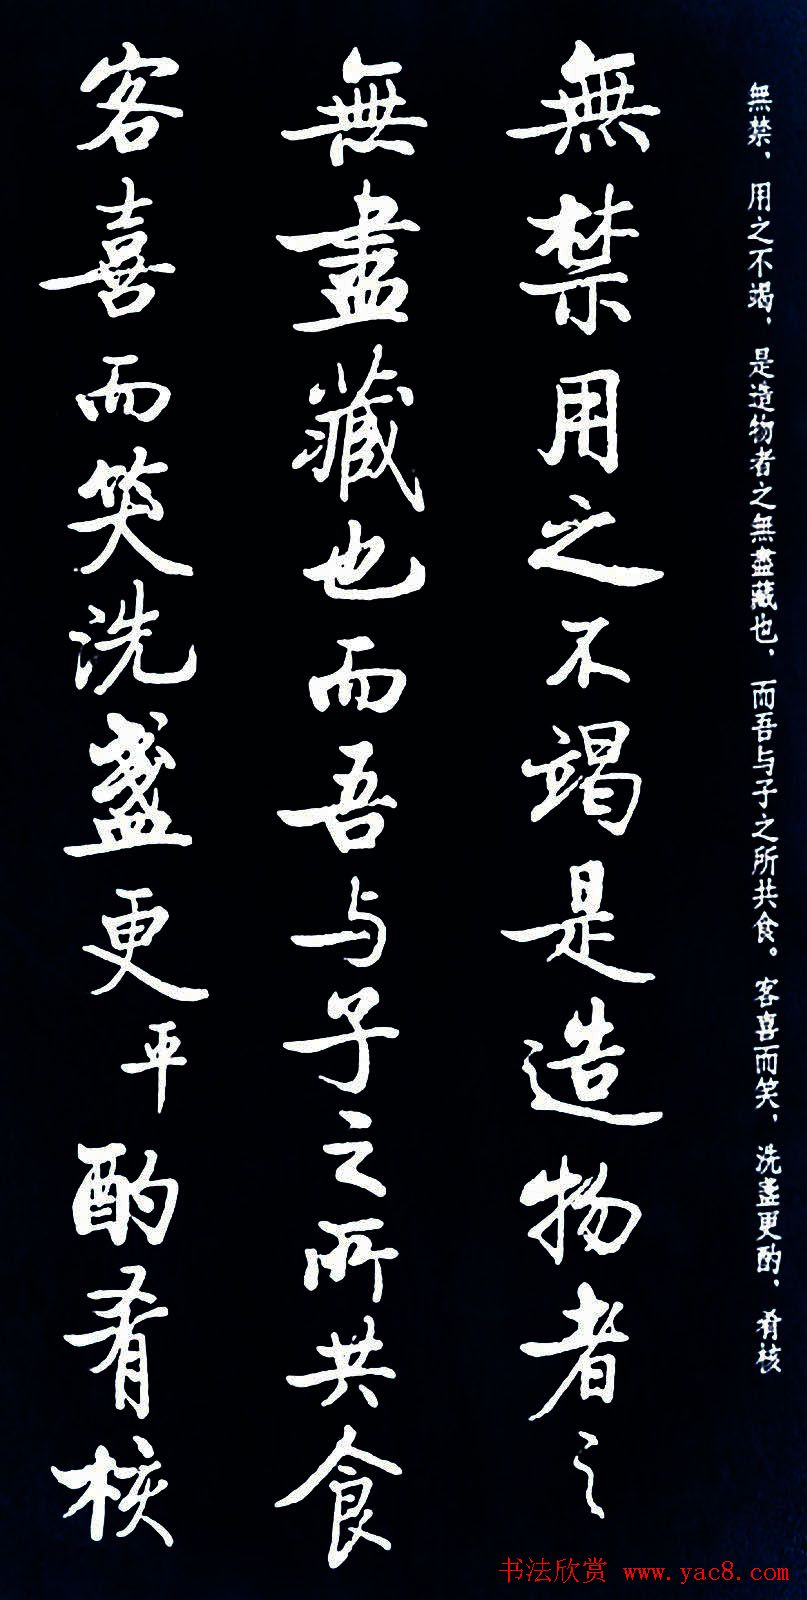 無禁，用之不竭，是造物者之無盡藏也，而吾与子之所共食。客喜而笑，洗盏更酌，肴核
無禁用之不竭是造物者之
無盡藏也而吾与子之所共食
客喜而笑洗盞更平酌肴核
书法欣赏 www.yac8.com